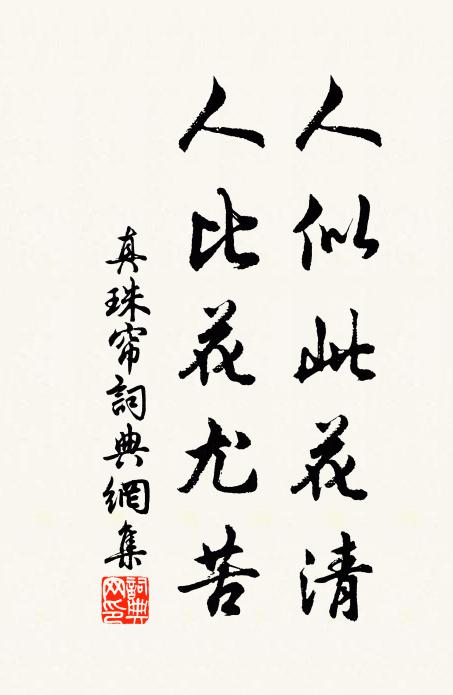 人似此花清
人比花尤苦
真珠帘詞典網集
詞典网印